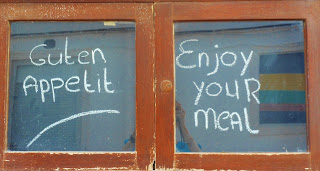 Guten
Appetit
Enjoy
your
meal